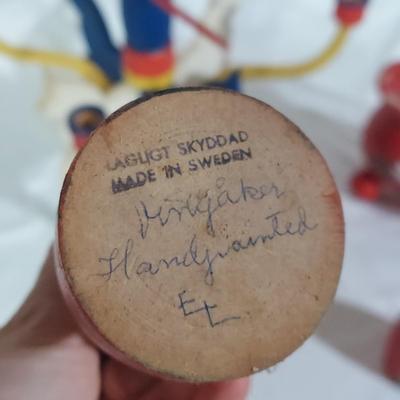 LAGLIGT SKYDDAD
MADE IN SWEDEN
Vingåker
Handpainted
EL